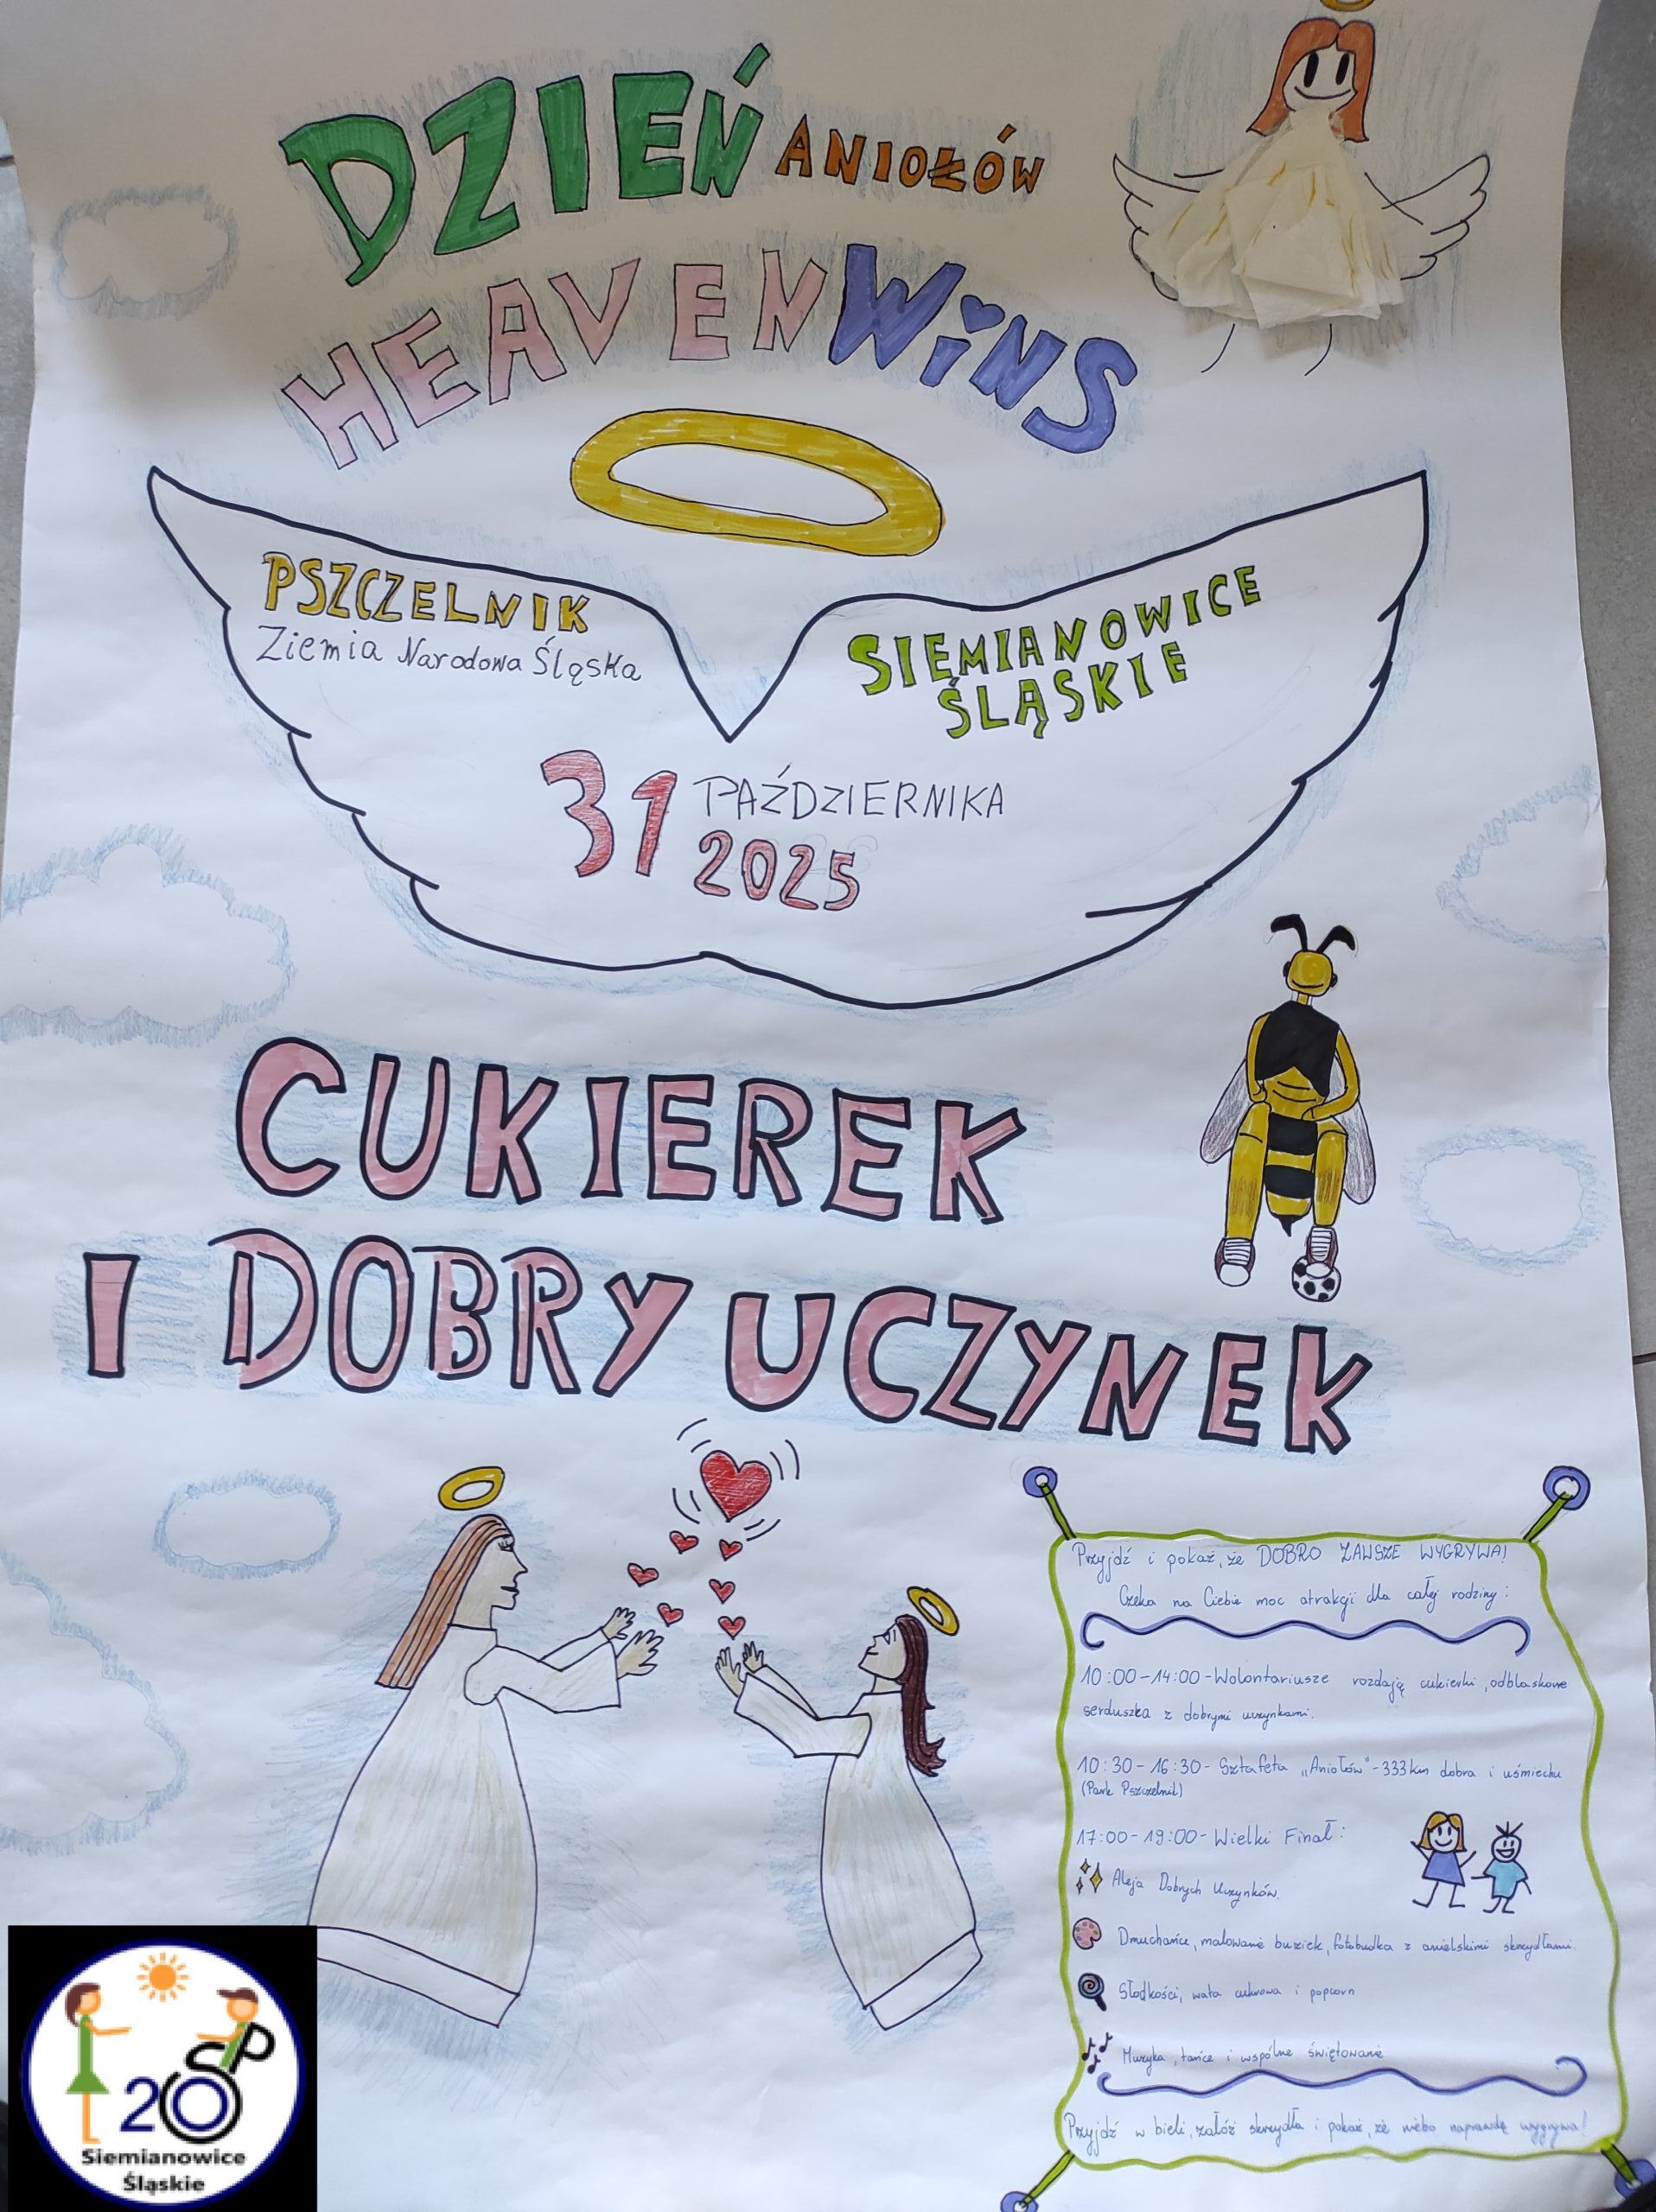 DZIEŃ ANIOŁÓW
HEAVENWiNS
PSZCZELNIK
Ziemia Narodowa Śląska
SIEMIANOWICE
ŚLĄSKIE
31 PAŹDZIERNIKA
2025
CUKIEREK
I DOBRY UCZYNEK
Przyjdź i pokaż, że DOBRO ZAWSZE WYGRYWA!
Czeka na Ciebie moc atrakcji dla całej rodziny:
10:00-14:00-Wolontariusze rozdają cukierki, odblaskowe
serduszka z dobrymi uczynkami.
10:30-16:30- Sztafeta „Aniołów"-333km dobra i uśmiechu
(Park Pszczelnik)
17:00-19:00-Wielki Finał:
Aleja Dobrych Uczynków.
Dmuchańce, malowanie buziek, fotobudka z anielskimi skrzydłami.
Słodkości, wata cukrowa i popcorn
Muzyka, tańce i wspólne świętowanie
Przyjdź w bieli, załóż skrzydła i pokaż, że niebo naprawdę wygrywa!
SP
20
Siemianowice
Śląskie